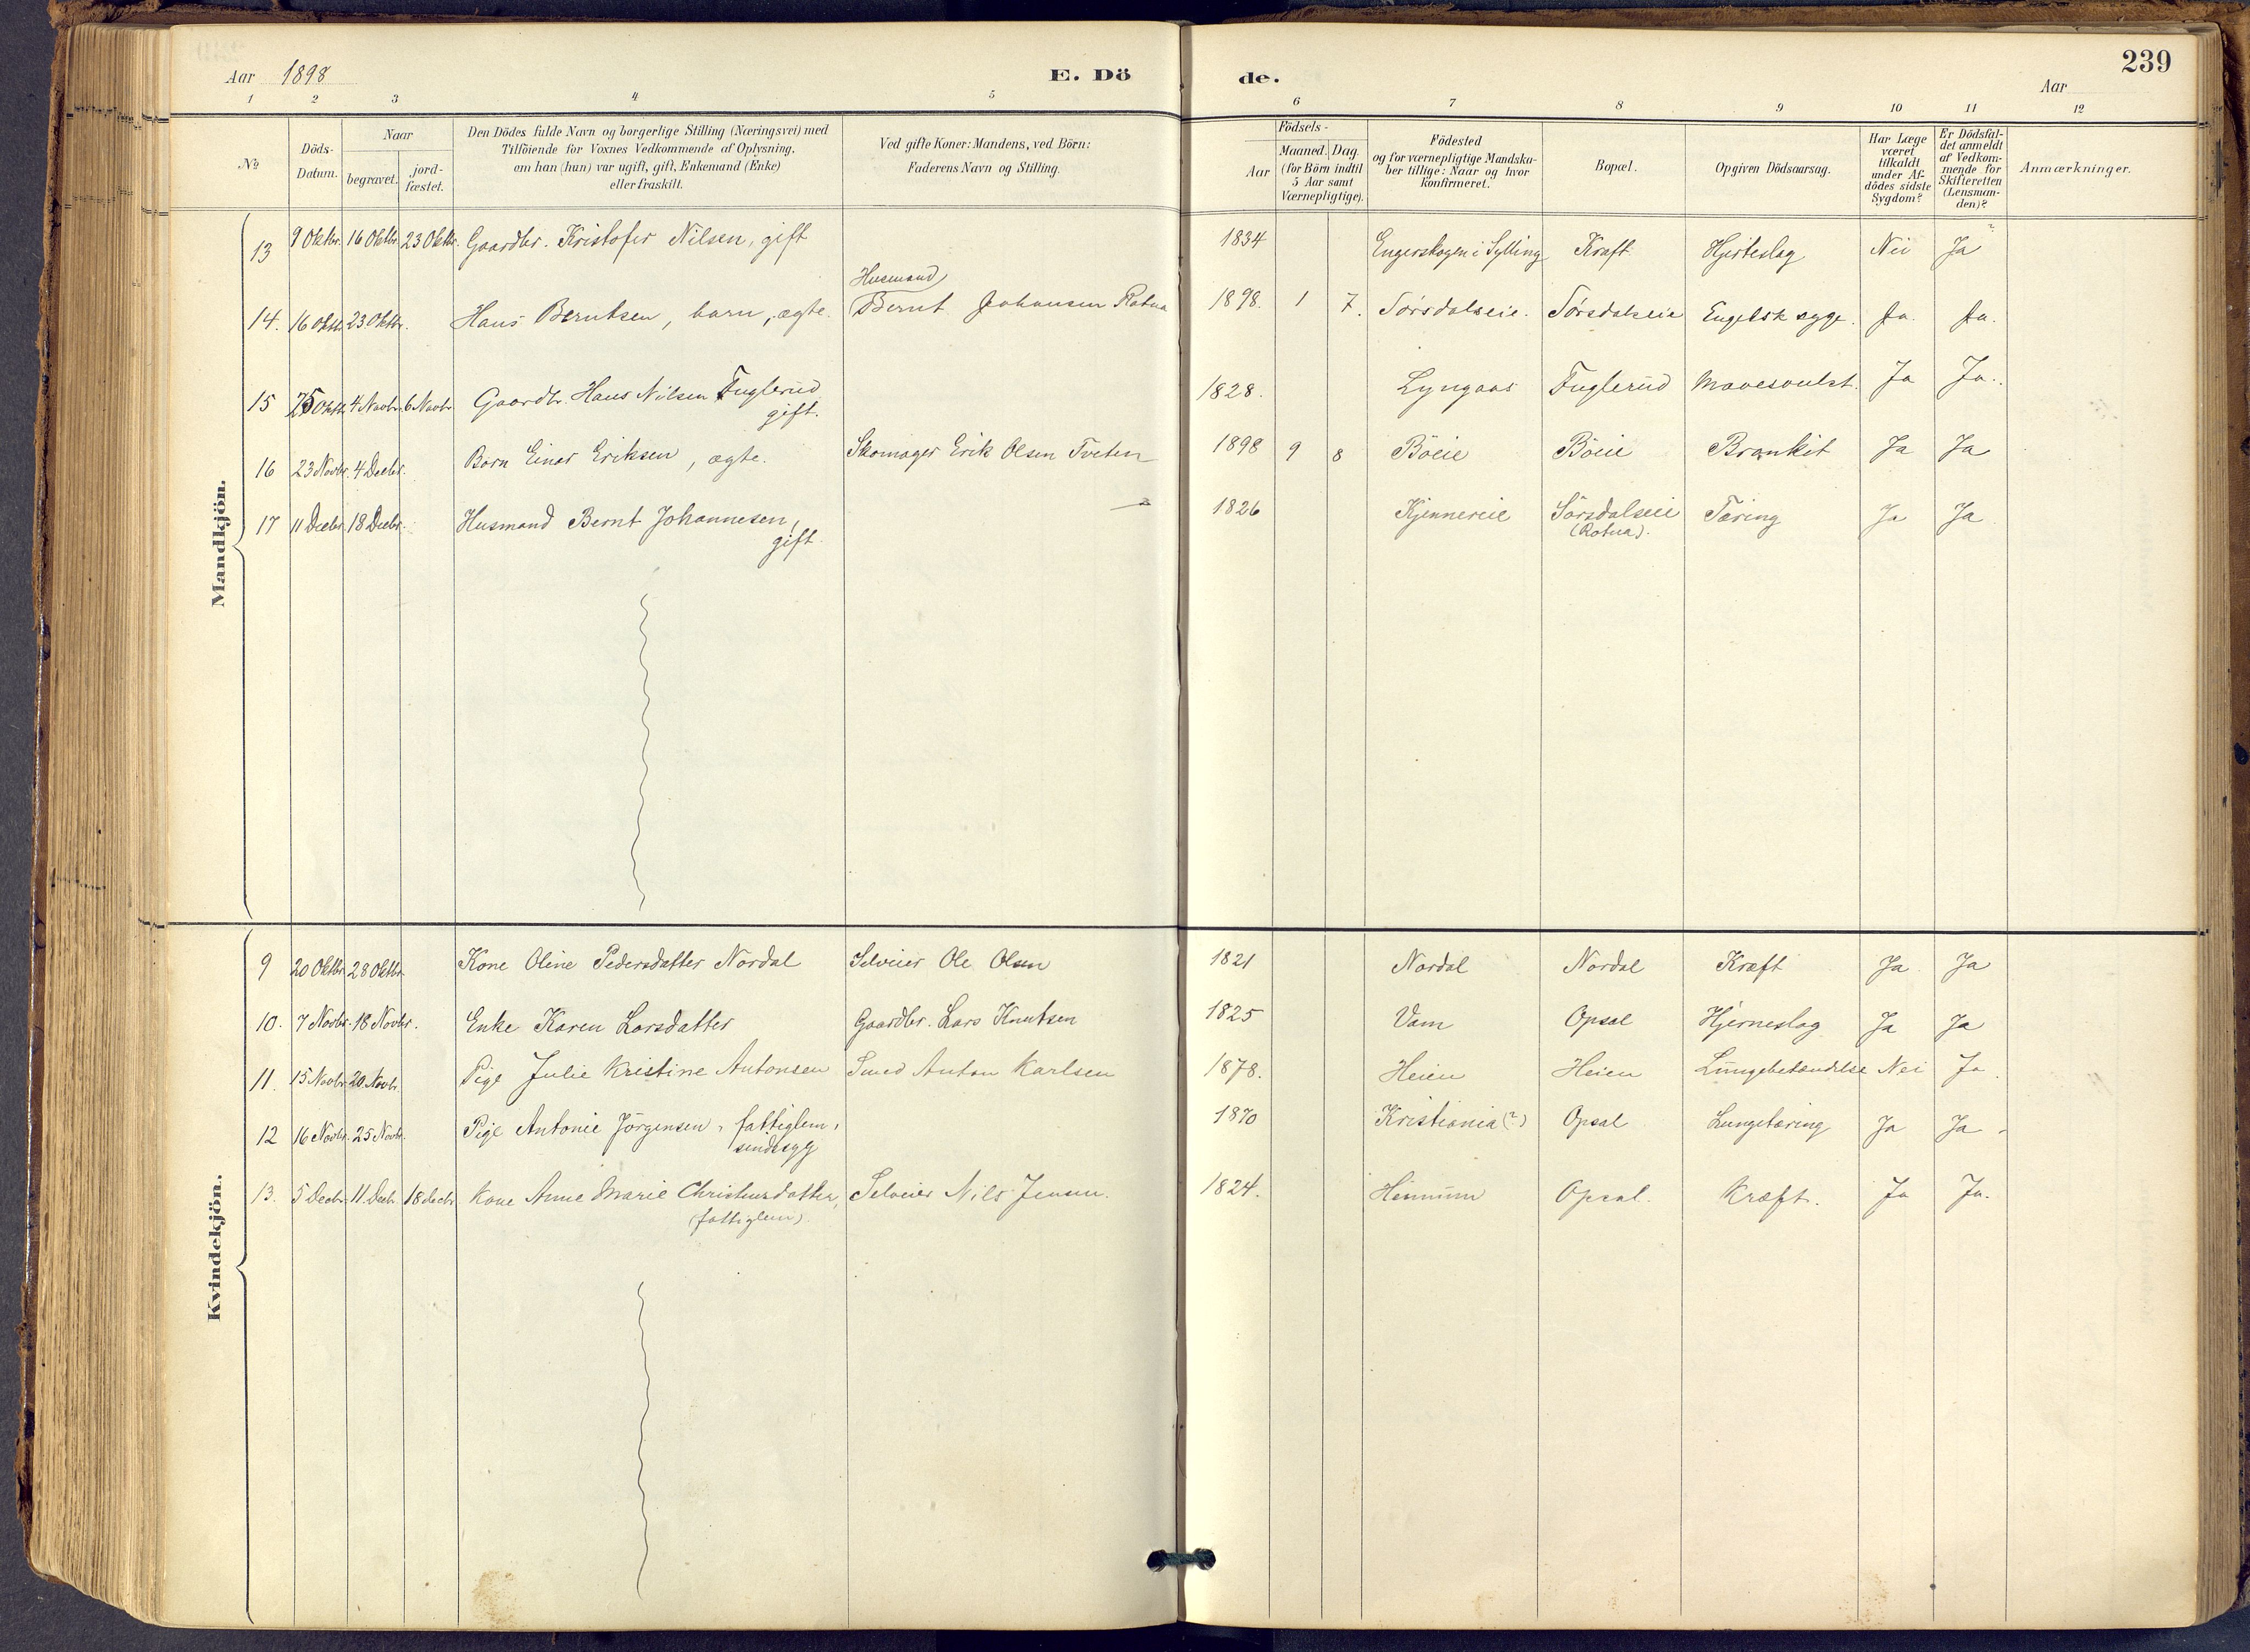 Aar 1898 E. Döde. Aar 239
1 2 3 4 5 6 7 8 9 10 11 12
No
Döds-Datum.
Naar
begravet.
jord-fæstet.
Den Dödes fulde Navn og borgerlige Stilling (Næringsvei) med
Tilföiende for Voxnes Vedkommende af Oplysning,
om han (hun) var ugift, gift, Enkemand (Enke)
eller fraskilt.
Ved gifte Koner: Mandens, ved Börn:
Faderens Navn og Stilling.
Födsels-
Aar
Maaned. Dag
(for Börn indtil
5 Aar samt
Værnepligtige).
Födested
og for værnepligtige Mandska-
ber tillige: Naar og hvor
Konfirmeret.
Bopæl.
Opgiven Dödsaarsag.
Har Læge
været
tilkaldt
under Af-
dödes sidste
Sygdom?
Er Dödsfal-
det anmeldt
af Vedkom-
mende for
Skifteretten
(Lensman-
den)?
Anmærkninger.
Mandkjön.
13 9 Oktbr. 16 Oktbr. 23 Oktbr. Gaardbr. Kristofer Nilsen, gift 1834 Engerskogen i Sylling Kraft Hjerteslag Nei Ja
Husmand
14. 16 Oktb. 23 Oktbr. Hans Berntsen, barn, ægte. Bernt Johansen Rotua 1898. 1 7. Sørsdalseie. Sørsdalseie Engelsk syge. Ja. Ja.
15 25 Oktb. 4 Novbr. 6 Novbr Gaardbr. Hans Nilsen Fuglerud 1828. Lyngaas Fuglerud Mavesvulst. Ja Ja.
gift.
16 23 Novbr. 4 Decbr. Barn Einar Eriksen, ægte. Skomager Erik Olsen Tveten 1898 9 8 Böeie Böeie Bronkit Ja Ja
17 11 Decbr. 18 Decbr. Husmand Bernt Johannesen, 1826 Kjennereie Sörsdalseie Tæring Ja Ja
gift. (Rotua).
Kvindekjön.
9 20 Oktbr. 28 Oktbr. Kone Oline Pedersdatter Nordal Selveier Ole Olsen 1821 Nordal Nordal Kræft Ja Ja
10. 7 Novbr. 18 Novbr. Enke Karen Larsdatter Gaardbr. Lars Knutsen 1825 Vam Opsal Hjerneslag Ja Ja
11. 15 Novbr. 20 Novb. Pige Julie Kristine Antonsen Smed Anton Karlsen 1878. Heien Heien Lungebetændelse Nei Ja
12 16 Novbr. 25 Novbr. Pige Antonie Jörgensen, fattiglem, 1870 Kristiania (?) Opsal Lungetæring Ja Ja
sindssyg
13. 5 Decbr. 11. Decb. 18 decbr Kone Anne Marie Christensdatter, Selveier Nils Jensen. 1824. Hennum Opsal. Kræft. Ja Ja.
(fattiglem).